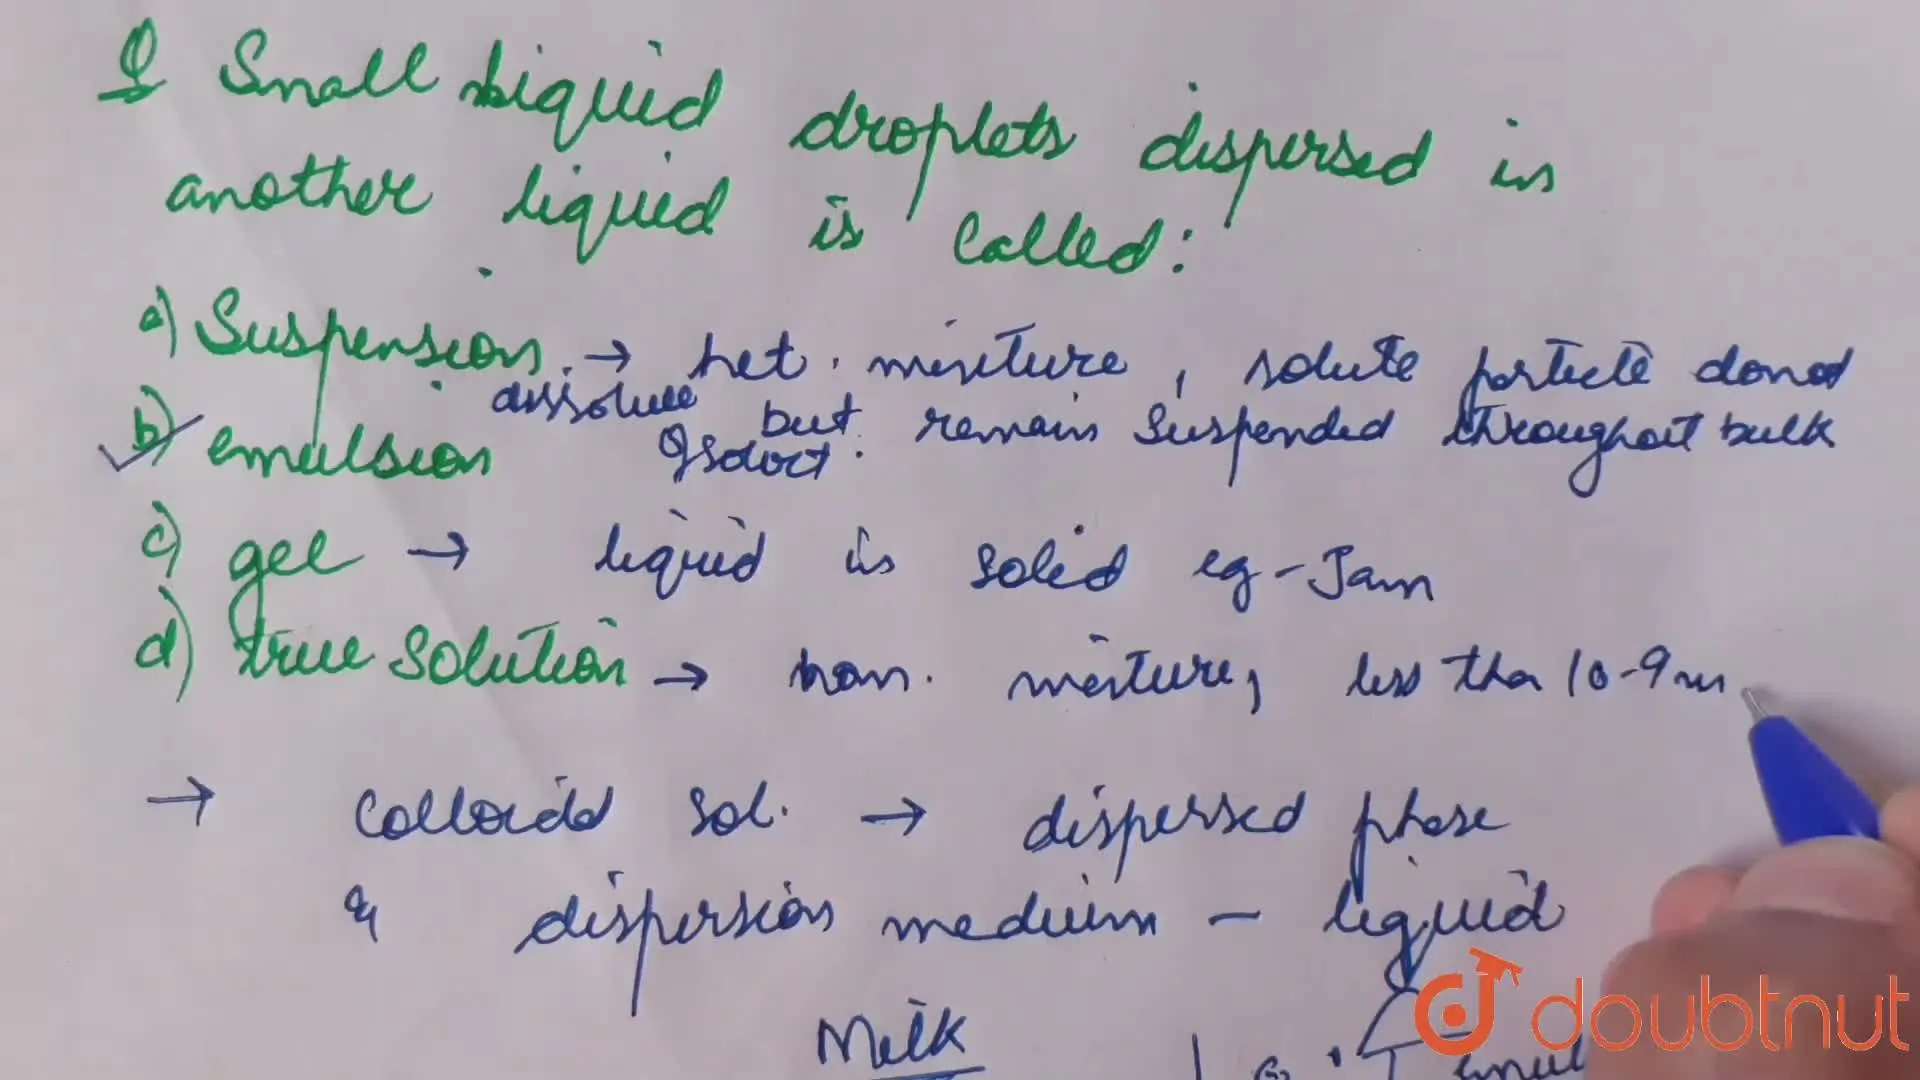 Q Small liquid droplets dispersed in
another liquid is called:
a) Suspension. → het. mixture, solute particle donot
dissolve but remain suspended throughout bulk
of solvct.
b) emulsion
c) gel → liquid is solid eg - Jam
d) true solution → hom. mixture, less than 10-9m
→ Colloidd sol. → dispersed phase
& dispersion medium - liquid
Milk
emul
doubtnut